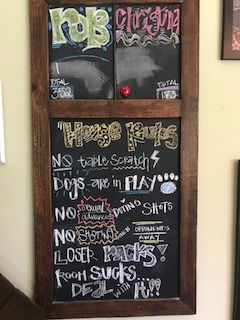 Rob
Christina
TOTAL
TOTAL
173
"House Rules
NO table SCRATCH
DOGS are in PLAY!
NO sexual advances DURING SHOTS
NO SHOTS WHEN OPPONENT'S AWAY
LOSER RACKS!
ROOM SUCKS
DEAL WITH IT!!